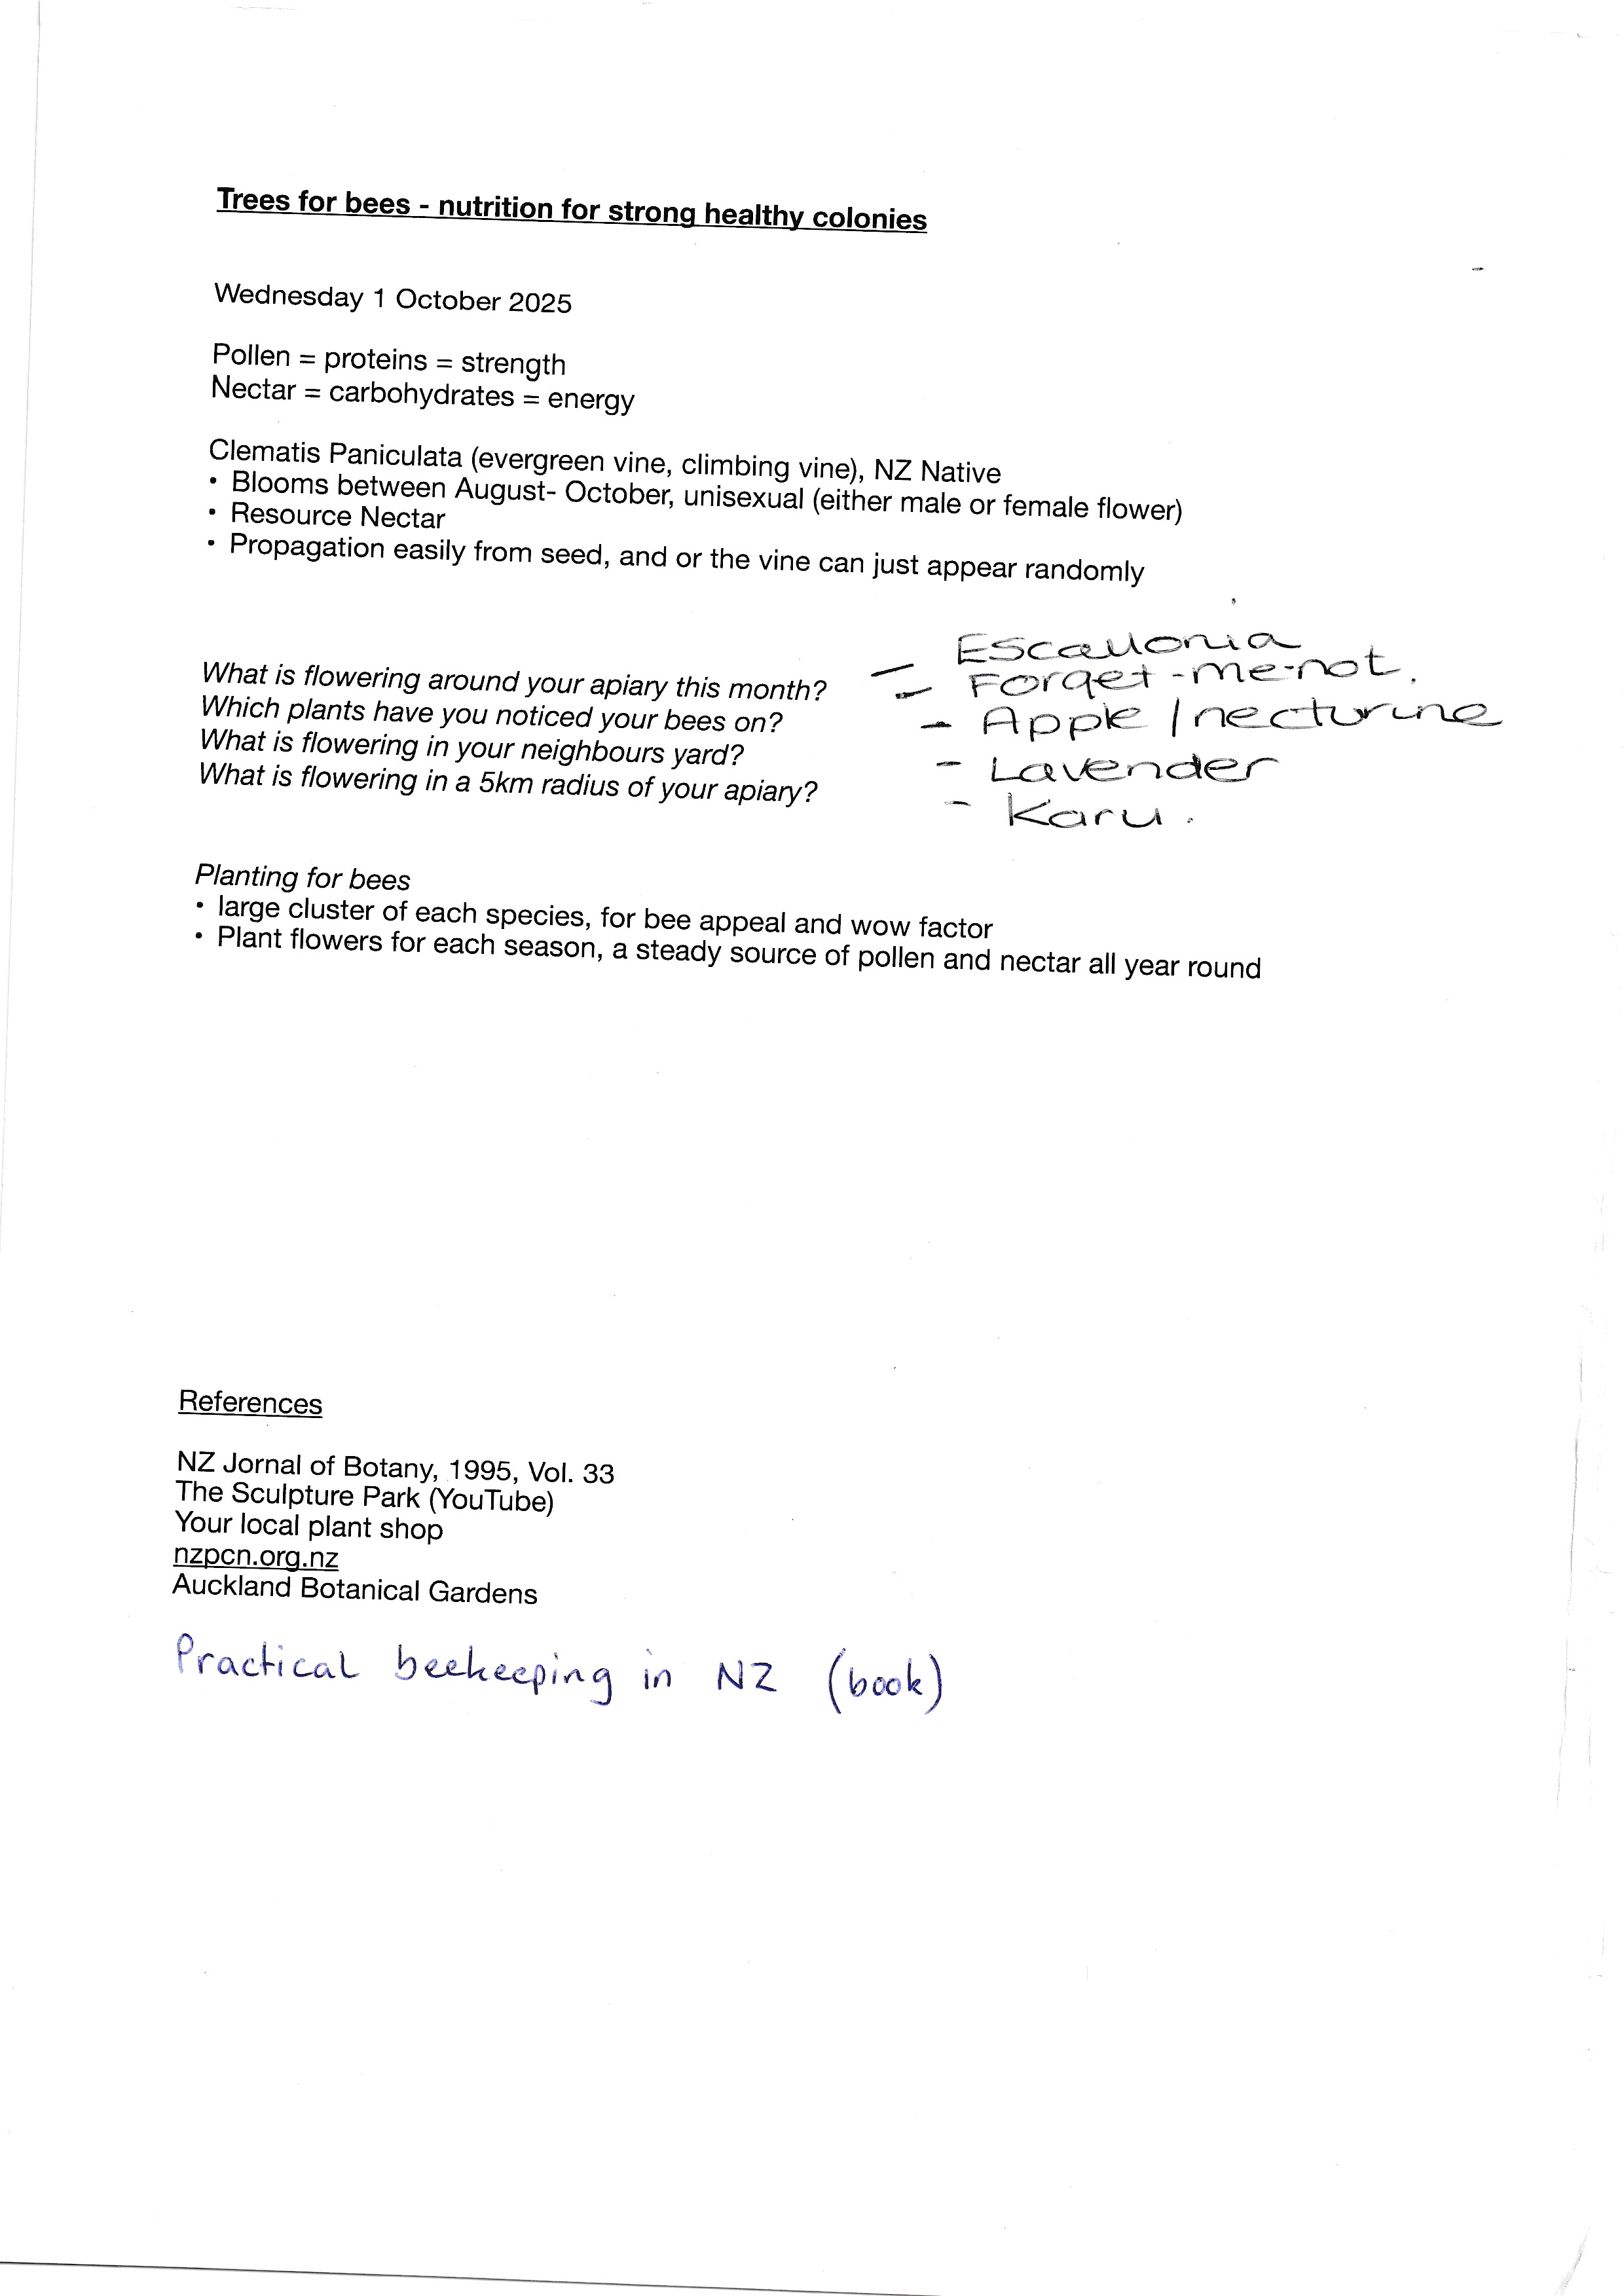 Trees for bees - nutrition for strong healthy colonies
Wednesday 1 October 2025
Pollen = proteins = strength
Nectar = carbohydrates = energy
Clematis Paniculata (evergreen vine, climbing vine), NZ Native
• Blooms between August- October, unisexual (either male or female flower)
• Resource Nectar
• Propagation easily from seed, and or the vine can just appear randomly
What is flowering around your apiary this month?
Which plants have you noticed your bees on?
What is flowering in your neighbours yard?
What is flowering in a 5km radius of your apiary?
- Escallonia
- Forget-me-not.
- Apple / necturine
- Lavender
- Karu.
Planting for bees
• large cluster of each species, for bee appeal and wow factor
• Plant flowers for each season, a steady source of pollen and nectar all year round
References
NZ Jornal of Botany, 1995, Vol. 33
The Sculpture Park (YouTube)
Your local plant shop
nzpcn.org.nz
Auckland Botanical Gardens
Practical beekeeping in NZ (book)